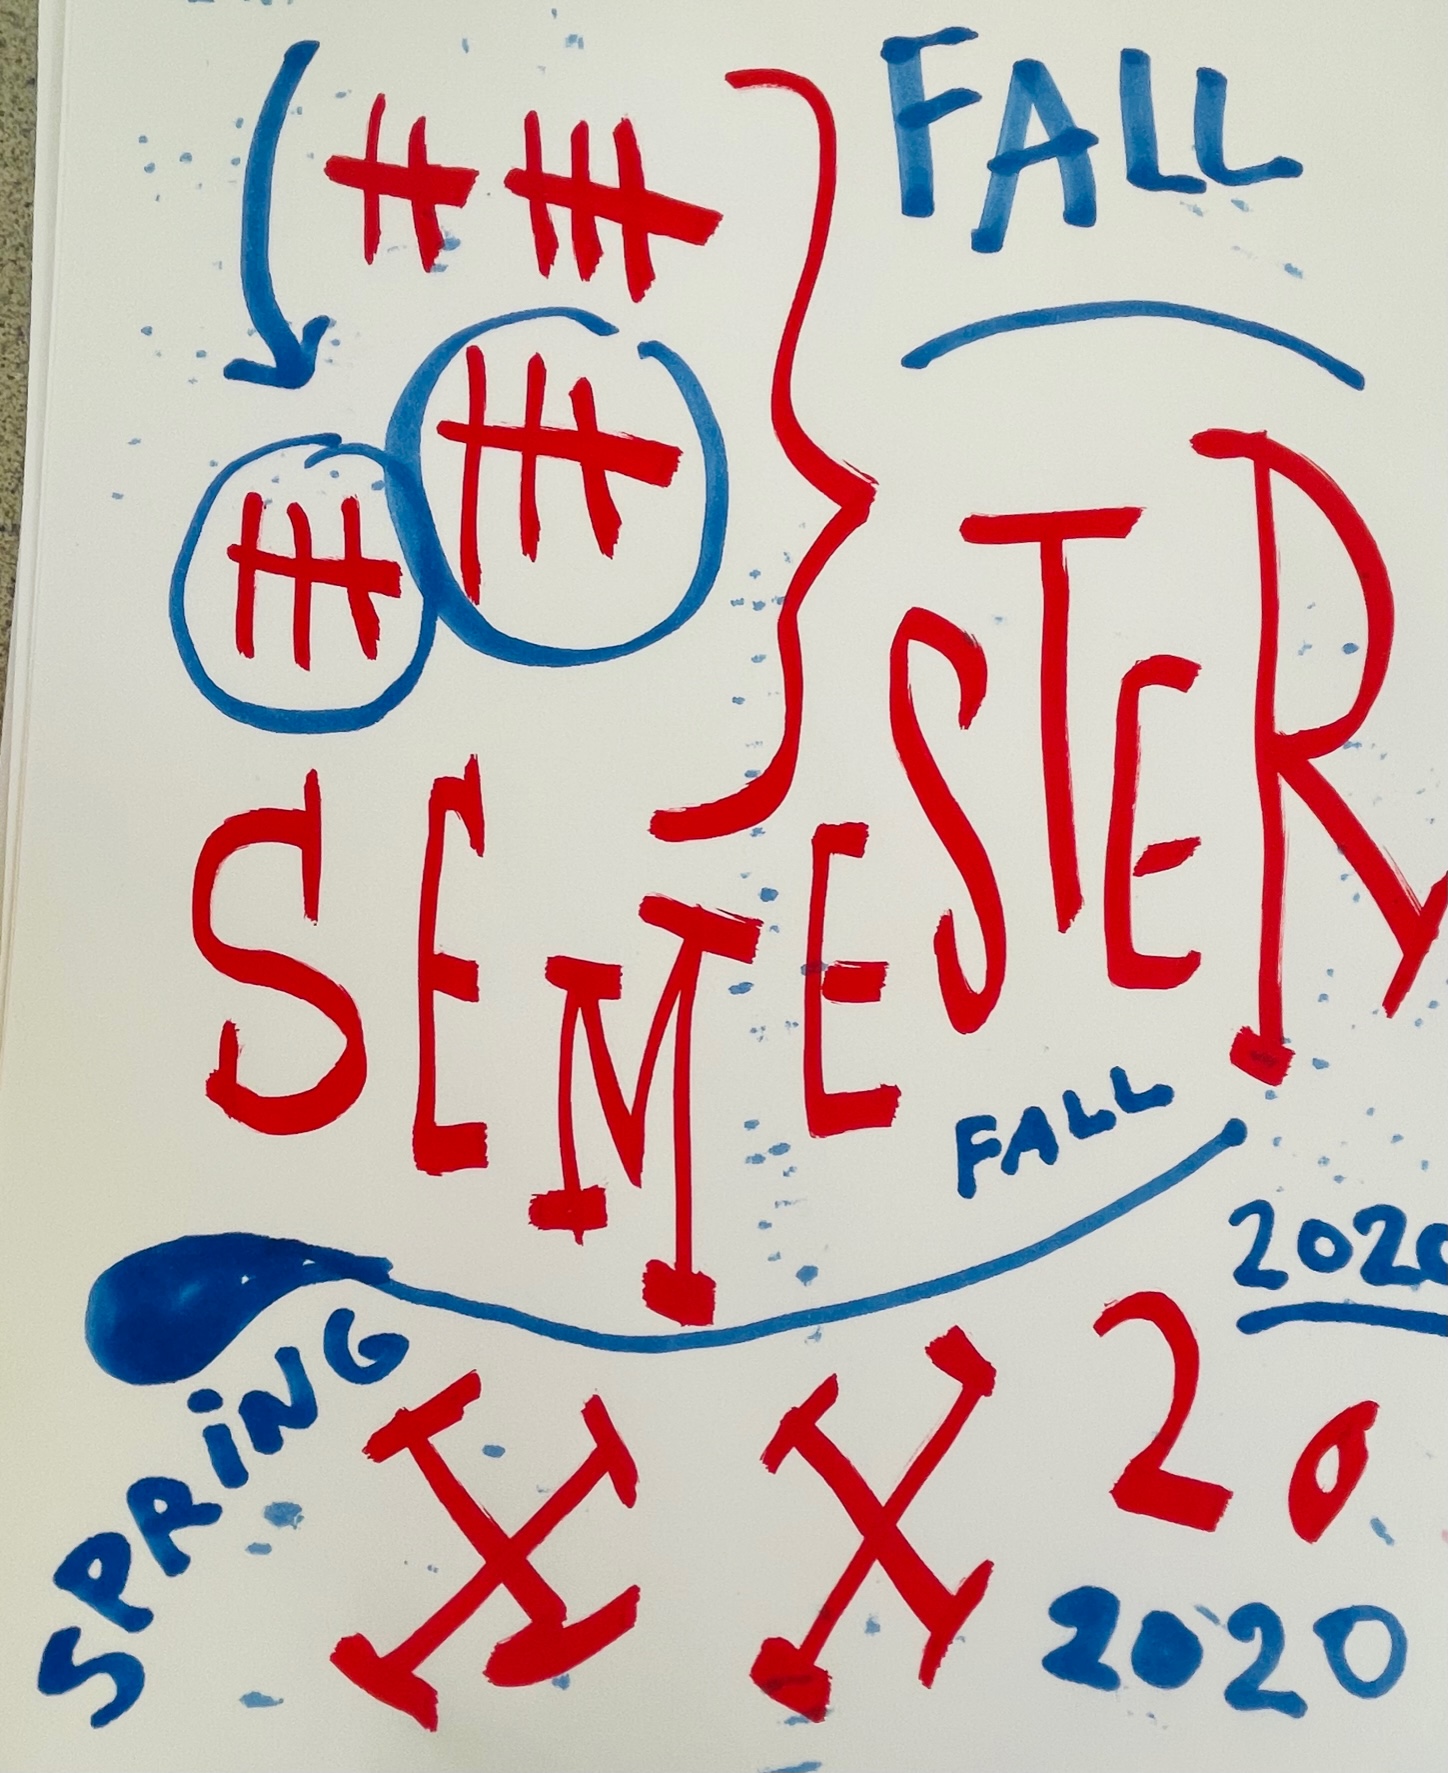 FALL
SEMESTER
FALL
2020
SPRING
XX 20
2020